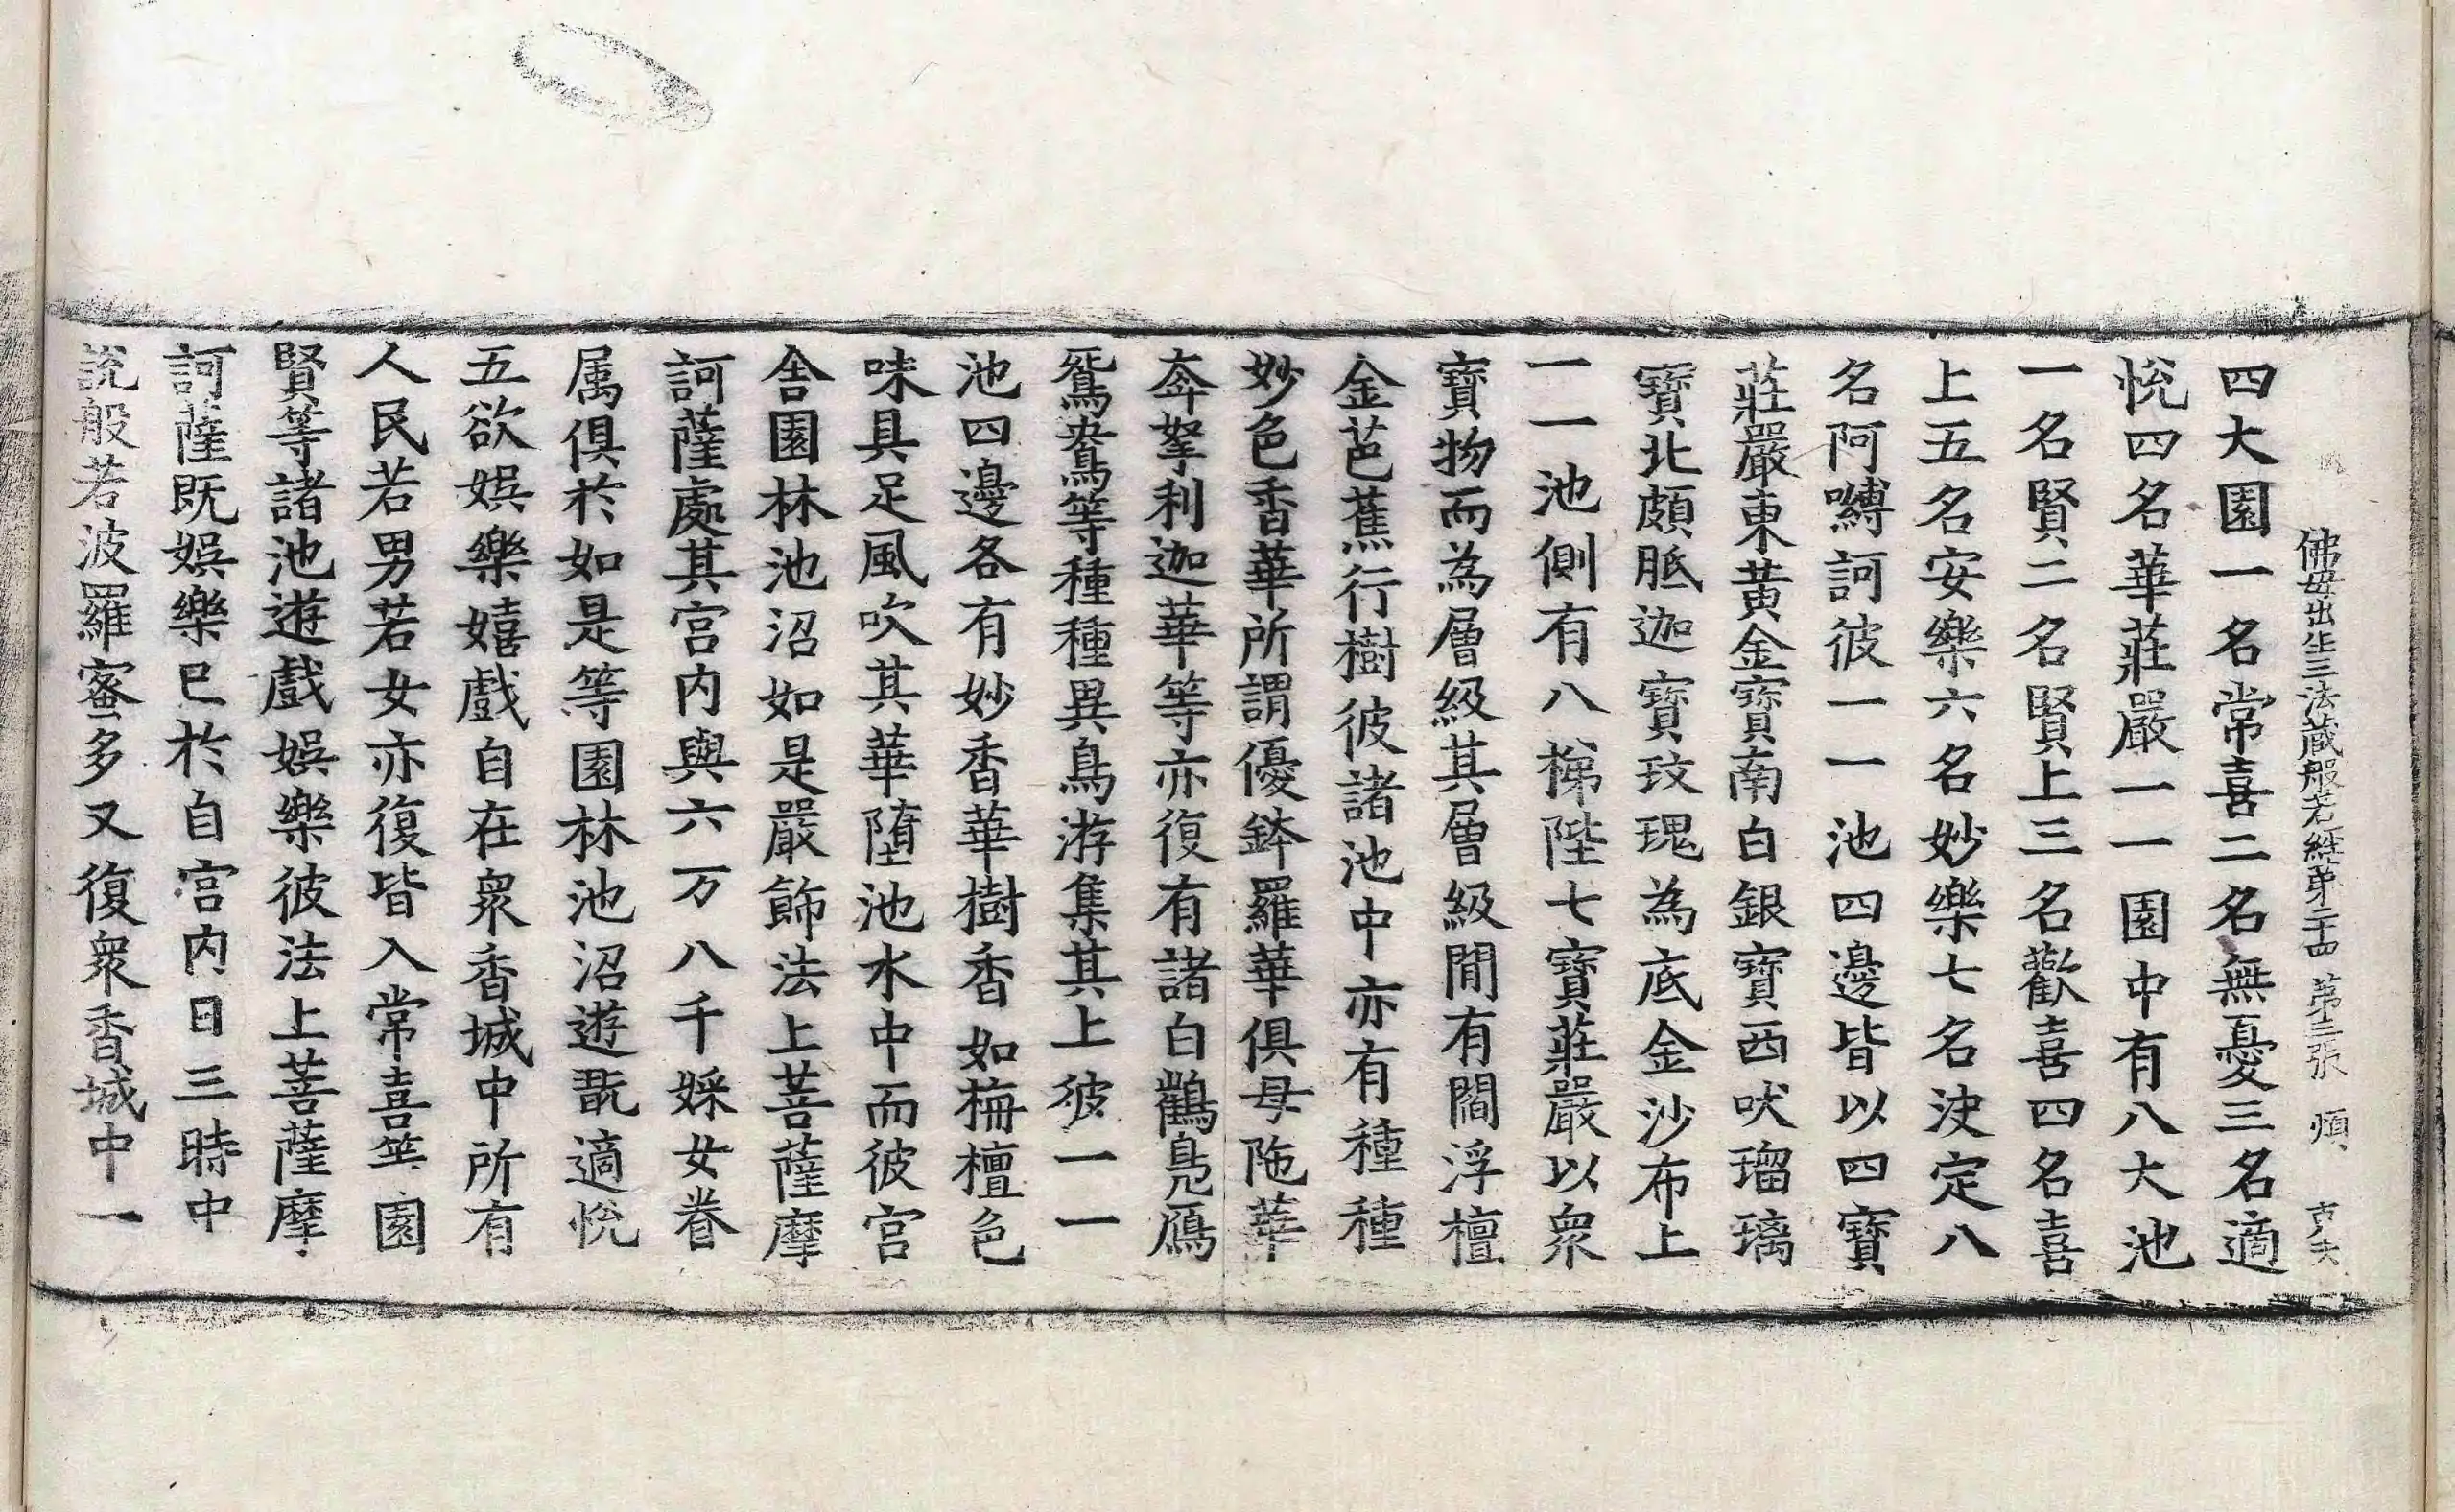 佛母出生三法藏般若經第二十四 第三張 傾 克夫
四大園一名常喜二名無憂三名適
悅四名華莊嚴一一園中有八大池
一名賢二名賢上三名歡喜四名喜
上五名安樂六名妙樂七名決定八
名阿嚩訶彼一一池四邊皆以四寶
莊嚴東黃金寶南白銀寶西吠瑠璃
寶北頗胝迦寶玫瑰為底金沙布上
一一池側有八梯陛七寶莊嚴以衆
寶物而為層級其層級閒有閻浮檀
金芭蕉行樹彼諸池中亦有種種
妙色香華所謂優鉢羅華俱母陁華
奔拏利迦華等亦復有諸白鸛鳧鴈
鴛鴦等種種異鳥游集其上彼一一
池四邊各有妙香華樹香如栴檀色
味具足風吹其華墮池水中而彼宮
舍園林池沼如是嚴飾法上菩薩摩
訶薩處其宮内與六万八千婇女眷
属俱於如是等園林池沼遊翫適悅
五欲娛樂嬉戲自在衆香城中所有
人民若男若女亦復皆入常喜等園
賢等諸池遊戲娛樂彼法上菩薩摩
訶薩既娛樂已於自宮内日三時中
說般若波羅蜜多又復衆香城中一